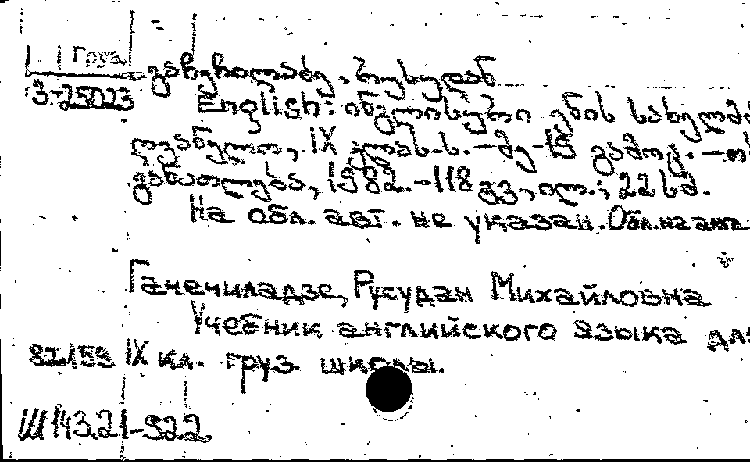 Груз.
3-25023
გაჩეჩილაძე, რუსუდან
English: ინგლისური ენის სახელმძ
ღვანელო, IX კლას.ს. -მე-15 გამოც. -თბ
განათლება, 1982. -118 გვ, ილ.; 22 სმ.
На обл. авт. не указан. Обл. на англ
Гачечиладзе, Русудан Михайловна
Учебник английского языка для
IX кл. груз. школы.
Ш143.21-922